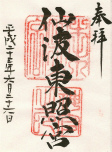 奉拝
仙波東照宮
平成二十三年六月二十六日